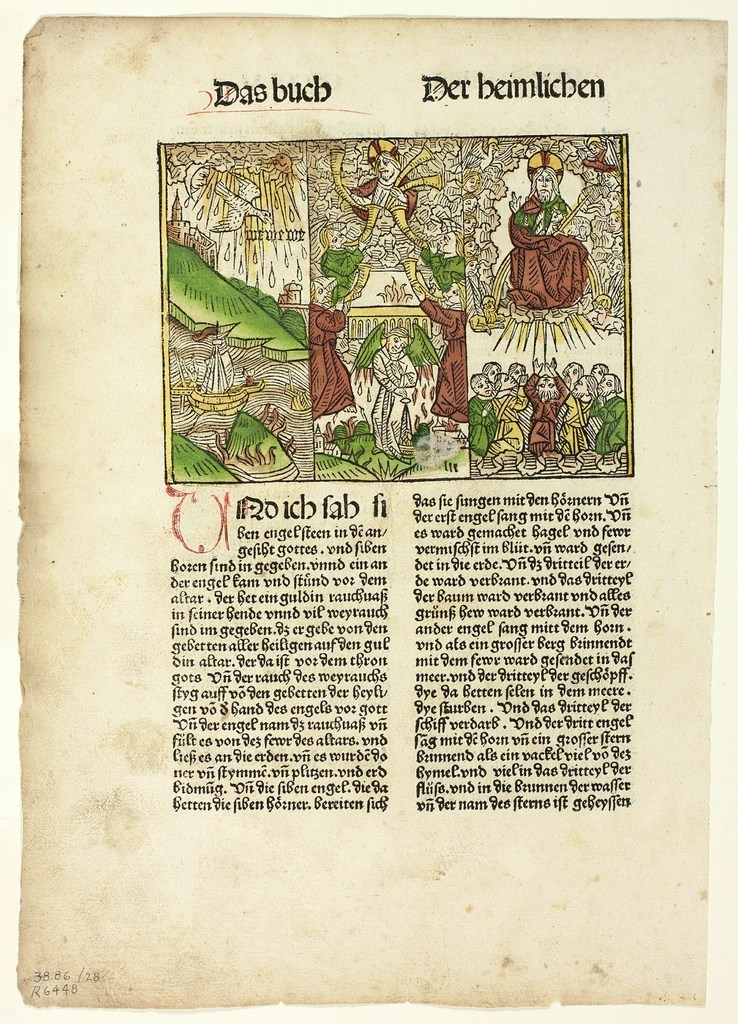 Das buch
Der heimlichen
we we we
UNd ich sah si
ben engel steen in dē an-
gesiht gottes. vnd siben
horen sind in gegeben. vnnd ein an
der engel kam vnd stůnd vor dem
altar. der het ein guldin rauchuaß
in seiner hende vnnd vil weyrauch
sind im gegeben. dz er gebe von den
gebetten aller heiligen auf den gul
din altar. der da ist vor dem thron
gots Vñ der rauch des weyrauchs
styg auff vō den gebetten der heyli-
gen vō d hand des engels vor gott
Vñ der engel nam dz rauchuaß vñ
fült es von dez fewr des altars. vnd
ließ es an die erden. vñ es wurdē do
ner vñ stymmē. vñ plitzen. vnd erd
bidmūg. Vñ die siben engel. die da
hetten die siben hörner. bereiten sich
das sie sungen mit den hörnern Vñ
der erst engel sang mit dē horn. Vñ
es ward gemachet hagel vnd fewr
vermischt im blůt. vñ ward gesen/
det in die erde. Vñ dz dritteil der er/
de ward verbrant. vnd das dritteyl
der baum ward verbrant vnd alles
grünß hew ward verbrant. Vñ der
ander engel sang mitt dem horn.
vnd als ein grosser berg brinnendt
mit dem fewr ward gesendet in das
meer. vnd der dritteyl der geschöpff.
dye da betten selen in dem meere.
dye sturben. Vnd das dritteyl der
schiff verdarb. Vnd der dritt engel
sāg mit dē horn vñ ein grosser stern
brinnend als ein vackel viel vō dez
hymel. vnd viel in das dritteyl der
flüss. vnd in die brunnen der wasser
vñ der nam des sterns ist geheyssen
38.86 /28
R6448